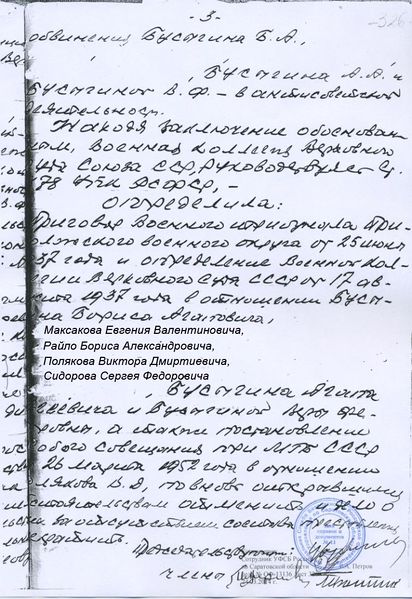 - 3 -
обвинения Бустгина Б.А.,
, Бустгина А.А. и
Бустгиной В.Ф. – в антисоветской
деятельности.
Находя заключение обоснован-
ным, Военная коллегия Верховного
Суда Союза ССР, руководствуясь ст.
378 УПК РСФСР, –
Определила:
Приговор Военного трибунала При-
волжского военного округа от 25 июня
1937 года и определение Военной кол-
легии Верховного Суда СССР от 17 ав-
густа 1937 года в отношении Буст-
гина Бориса Агаповича,
Максакова Евгения Валентиновича,
Райло Бориса Александровича,
Полякова Виктора Дмиртиевича,
Сидорова Сергея Федоровича
, Бустгина Агапа
и Бустгиной Веры Фе-
доровны, а также постановление
Особого совещания при МГБ СССР
от 26 марта 1952 года в отношении
Полякова В.Д. по вновь открывшимся
обстоятельствам отменить и дело
за отсутствием состава преступления
прекратить.
Председательствующий:
члены
Сотрудник УФСБ России
по Саратовской области
Петров